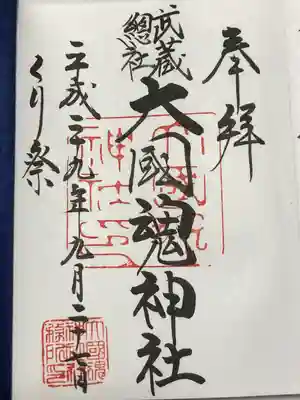 奉拝
武蔵
總社
大國魂神社
平成二九年九月二十七日
くり祭